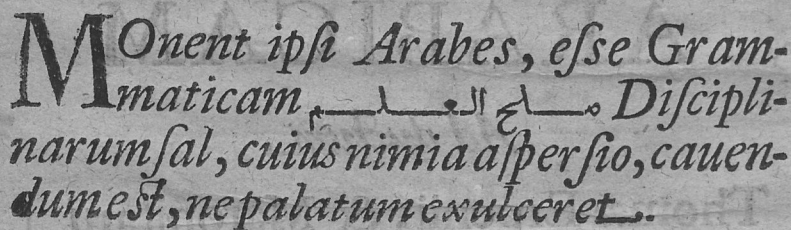 MOnent ipſi Arabes, eſse Gram-
maticam ملح العلم Diſcipli-
narum ſal, cuius nimia aſperſio, cauen-
dum est, ne palatum exulceret.